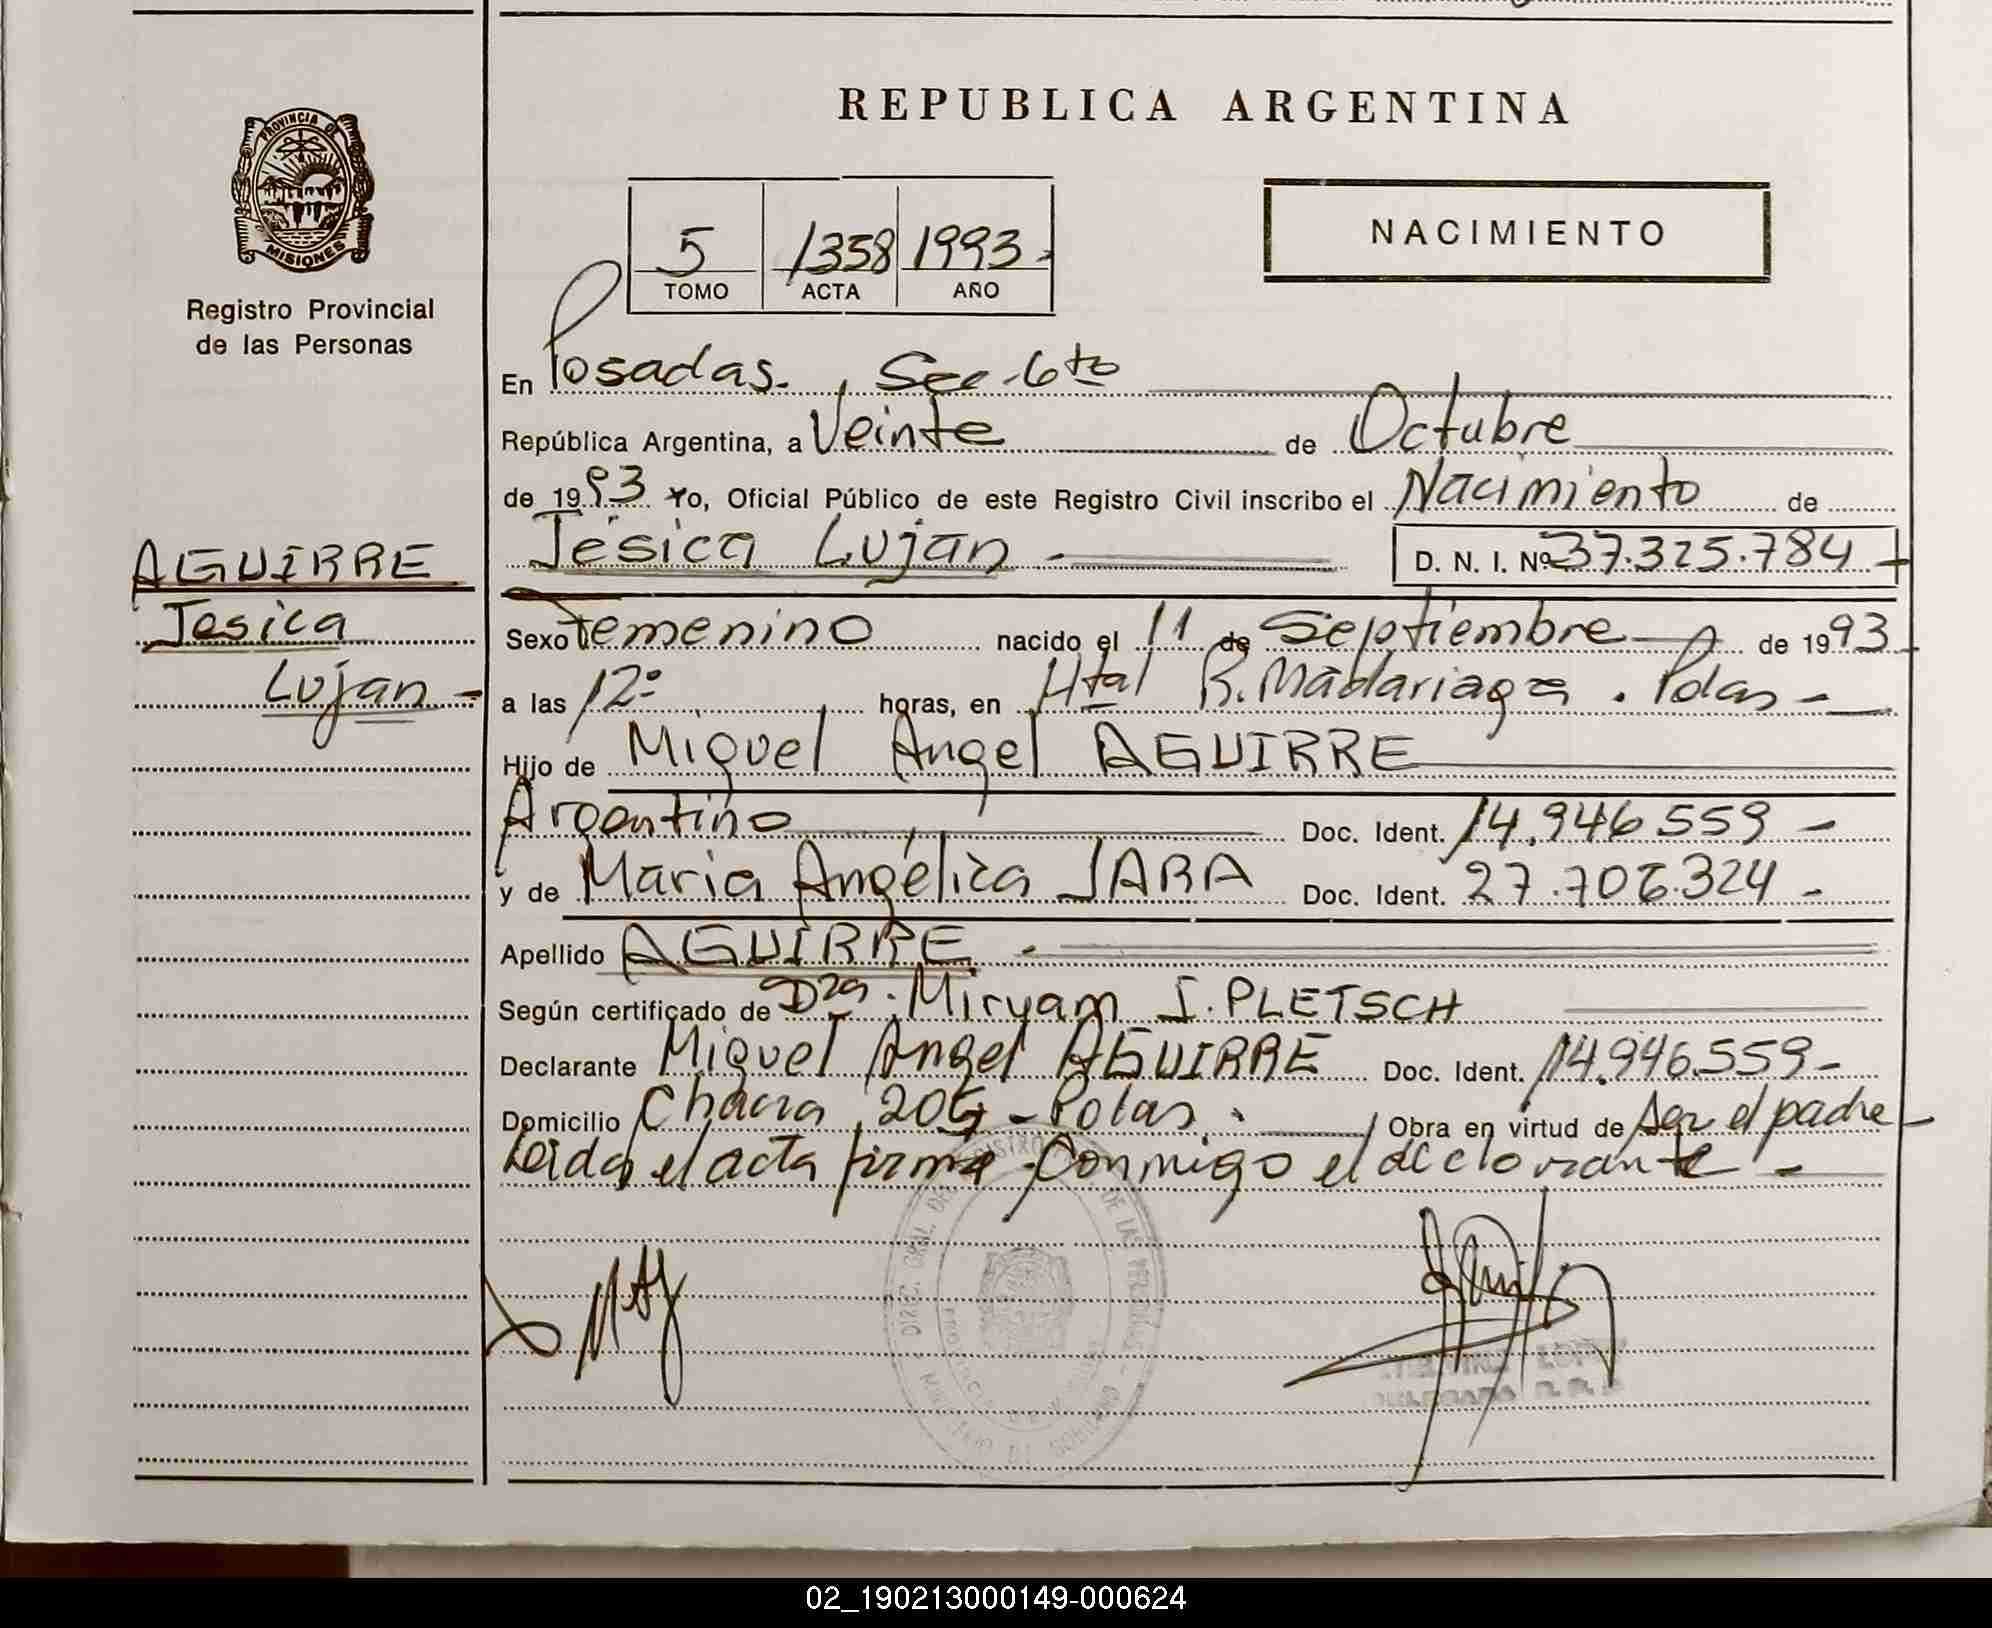 REPUBLICA ARGENTINA
PROVINCIA DE
MISIONES
Registro Provincial
de las Personas
5 1358 1993
TOMO ACTA AÑO
NACIMIENTO
En Posadas. , Sec-6to
República Argentina, a Veinte de Octubre
de 1993 Yo, Oficial Público de este Registro Civil inscribo el Nacimiento de
Jesica Lujan - D. N. I. Nº 37.325.784 -
AGUIRRE
Jesica
Lujan -
Sexo Femenino nacido el 11 de Septiembre de 1993
a las 12º horas, en Htal R. Madariaga . Pdas -
Hijo de Miguel Angel AGUIRRE
Argentino Doc. Ident. 14.946.559 -
y de Maria Angélica JARA Doc. Ident. 27.706.324 -
Apellido AGUIRRE -
Según certificado de Dra. Miryam J. PLETSCH
Declarante Miguel Angel AGUIRRE Doc. Ident. 14.946.559 -
Domicilio Chacra - Pdas. Obra en virtud de ser el padre -
Leida el acta firma conmigo el declarante -
02_190213000149-000624